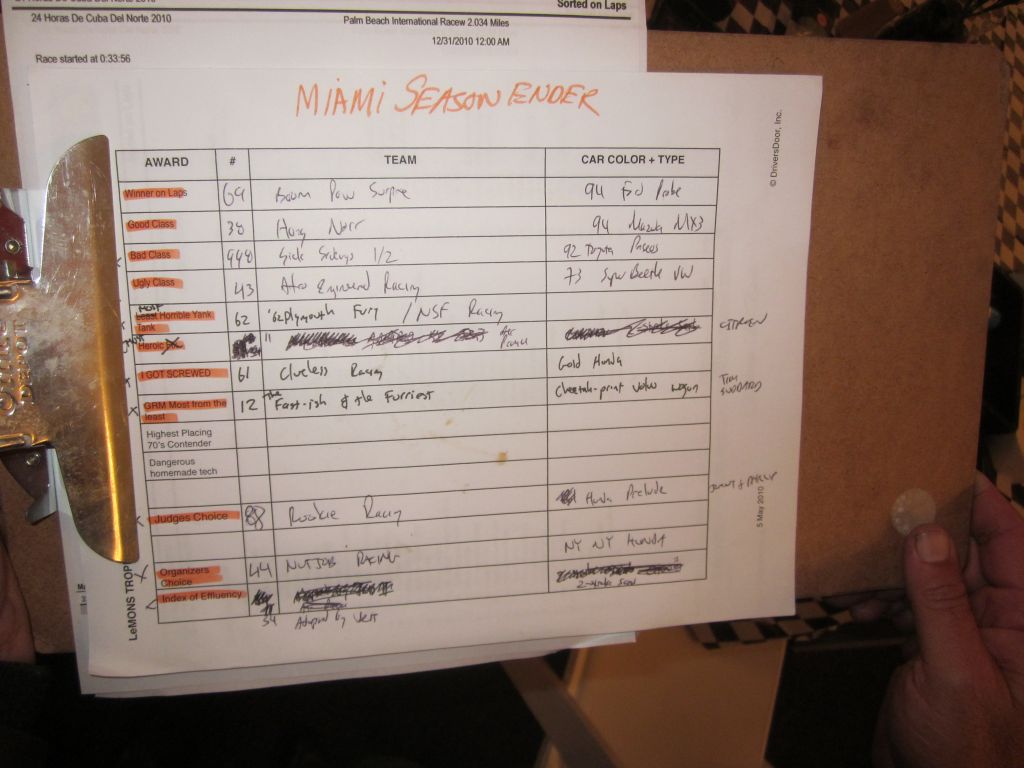 Sorted on Laps
24 Horas De Cuba Del Norte 2010
Palm Beach International Racew 2.034 Miles
12/31/2010 12:00 AM
Race started at 0:33:56
MIAMI SEASON ENDER
© DriversDoor, Inc.
AWARD # TEAM CAR COLOR + TYPE
Winner on Laps 69 Boom Pow Surprise 94 Ford Probe
Good Class 38 Hong Norr 94 Mazda MX3
Bad Class 998 1/2 92 Toyota Paseo
Ugly Class 43 Afro Engineered Racing 73 Super Beetle VW
Most
Least Horrible Yank Tank 62 Plymouth Fury / NSF Racing
Heroic CITROEN
I GOT SCREWED 61 Clueless Racing Gold Honda
GRM Most from the least 12 The Fast-ish & the Furriest Cheetah-print Volvo wagon
Highest Placing
70's Contender
Dangerous
homemade tech
Judges Choice 88 Rookie Racing Honda Prelude
Organizers Choice 44 NUTJOB RACING NY NY HONDA
Index of Effluency
34 Adopted by
5 May 2010
LeMONS TROP